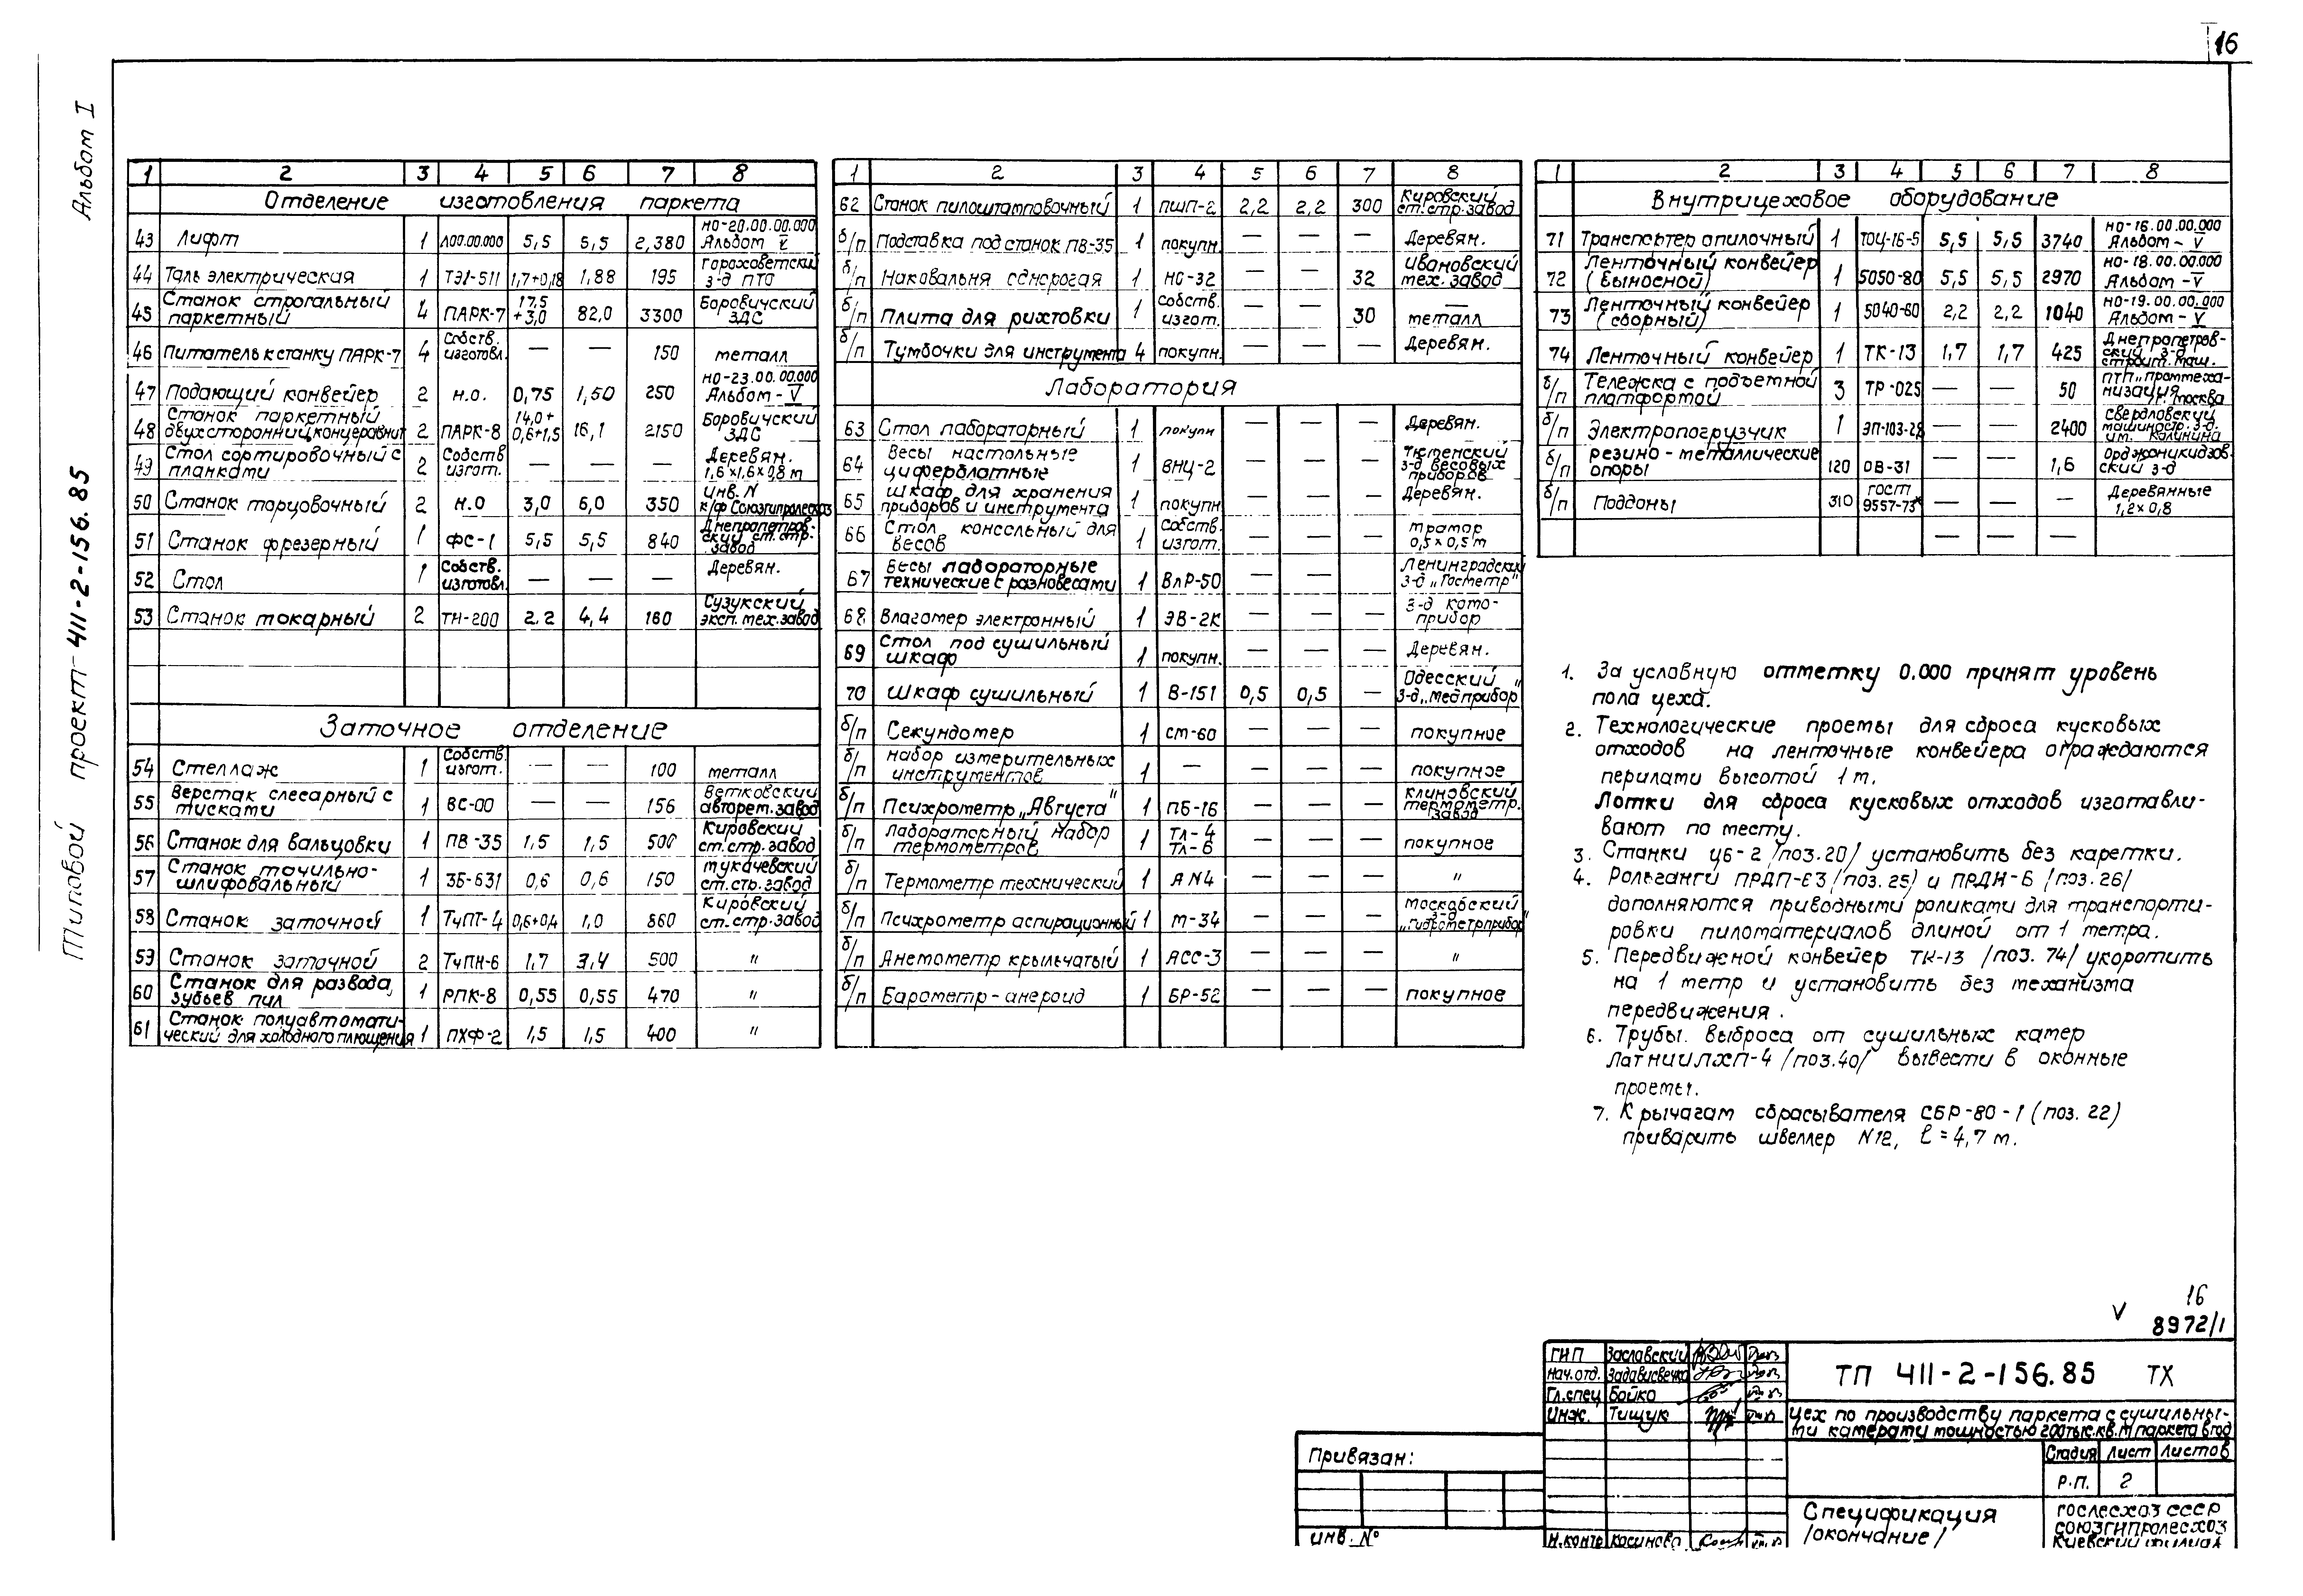 16
Альбом I
Типовой проект 411-2-156.85
1 2 3 4 5 6 7 8
Отделение изготовления паркета
43 Лифт 1 Л00.00.000 5,5 5,5 2,380 НО-20.00.00.000 Альбом V
44 Таль электрическая 1 ТЭ1-511 1,7+0,18 1,88 195 Гороховетский з-д ПТО
45 Станок строгальный паркетный 4 ПАРК-7 17,5+3,0 82,0 3300 Боровичский ЗДС
46 Питатель к станку ПАРК-7 4 Собств. изготовл. — — 150 металл
47 Подающий конвейер 2 Н.О. 0,75 1,50 250 НО-23.00.00.000 Альбом-V
48 Станок паркетный двухсторонний, концеравнит 2 ПАРК-8 14,0+0,6+1,5 16,1 2150 Боровичский ЗДС
49 Стол сортировочный с планками 2 Собств изгот. — — — Деревян. 1,6×1,6×0,8 м
50 Станок торцовочный 2 Н.О 3,0 6,0 350 Инв. N к/ф Союзгипролесхоз
51 Станок фрезерный 1 ФС-1 5,5 5,5 840 Днепропетровский ст.стр. завод
52 Стол 1 Собств. изготовл. — — — Деревян.
53 Станок токарный 2 ТН-200 2.2 4,4 160 Сузукский эксп. мех. завод
Заточное отделение
54 Стеллаж 1 Собств. изгот. — — 100 металл
55 Верстак слесарный с тисками 1 ВС-00 — — 156 Ветковский авторем. завод
56 Станок для вальцовки 1 ПВ-35 1,5 1,5 500 Кировский ст.стр. завод
57 Станок точильно-шлифовальный 1 3Б-631 0,6 0,6 150 Мукачевский ст.стр. завод
58 Станок заточной 1 ТчПТ-4 0,6+0,4 1,0 860 Кировский ст.стр. завод
59 Станок заточной 2 ТчПН-6 1,7 3,4 500 "
60 Станок для развода зубьев пил 1 РПК-8 0,55 0,55 470 "
61 Станок полуавтоматический для холодного плющения 1 ПХФ-2 1,5 1,5 400 "
1 2 3 4 5 6 7 8
62 Станок пилоштамповочный 1 ПШП-2 2,2 2,2 300 Кировский ст.стр. завод
б/п Подставка под станок ПВ-35 1 покупн. — — Деревян.
б/п Наковальня однорогая 1 НО-32 — — 32 Ивановский мех. завод
б/п Плита для рихтовки 1 Собств. изгот. — — 30 металл
б/п Тумбочки для инструмента 4 покупн. — — — Деревян.
Лаборатория
63 Стол лабораторный 1 покупн — — — Деревян.
64 Весы настольные циферблатные 1 ВНЦ-2 — — — Тюменский з-д весовых приборов
65 Шкаф для хранения приборов и инструмента 1 покупн. — — — Деревян.
66 Стол консольный для весов 1 Собств. изгот. — — — мрамор 0,5×0,5 м
67 Весы лабораторные технические с разновесами 1 ВЛР-50 — — — Ленинградский з-д „Госметр"
68 Влагомер электронный 1 ЭВ-2К — — — З-д кото- прибор
69 Стол под сушильный шкаф 1 покупн. — — — Деревян.
70 Шкаф сушильный 1 В-151 0,5 0,5 — Одесский з-д „Медприбор"
б/п Секундомер 1 СМ-60 — — — покупное
б/п Набор измерительных инструментов 1 — — — — покупное
б/п Психрометр „Августа" 1 ПБ-16 — — — Клиновский термометр. завод
б/п Лабораторный набор термометров 1 ТЛ-4 ТЛ-6 — — — покупное
б/п Термометр технический 1 А N4 — — — "
б/п Психрометр аспирационный 1 М-34 — — — Московский з-д „Гидрометприбор"
б/п Анемометр крыльчатый 1 АСС-3 — — — "
б/п Барометр-анероид 1 БР-52 — — — покупное
1 2 3 4 5 6 7 8
Внутрицеховое оборудование
71 Транспортер опилочный 1 ТОЦ-16-5 5,5 5,5 3740 НО-16.00.00.000 Альбом-V
72 Ленточный конвейер (выносной) 1 5050-80 5,5 5,5 2970 НО-18.00.00.000 Альбом-V
73 Ленточный конвейер (сборный) 1 5040-60 2,2 2,2 1040 НО-19.00.00.000 Альбом-V
74 Ленточный конвейер 1 ТК-13 1,7 1,7 425 Днепропетровский з-д строит. маш.
б/п Тележка с подъемной платформой 3 ТР-025 — — 50 ПТП „Проммеханизация" г. Москва
б/п Электропогрузчик 1 ЭП-103-28 — — 2400 Свердловский машиностр. з-д. им. Калинина
б/п резино-металлические опоры 120 ОВ-31 — — 1,6 Орджоникидзовский з-д
б/п Поддоны 310 ГОСТ 9557-73* — — — Деревянные 1,2×0,8
— — —
1. За условную отметку 0.000 принят уровень
пола цеха.
2. Технологические проемы для сброса кусковых
отходов на ленточные конвейера ограждаются
перилами высотой 1 м.
Лотки для сброса кусковых отходов изготавли-
вают по месту.
3. Станки ЦБ-2 /поз.20/ установить без каретки.
4. Рольганги ПРДП-63 /поз. 25/ и ПРДН-6 /поз. 26/
дополняются приводными роликами для транспорти-
ровки пиломатериалов длиной от 1 метра.
5. Передвижной конвейер ТК-13 /поз. 74/ укоротить
на 1 метр и установить без механизма
передвижения.
6. Трубы выброса от сушильных камер
ЛатНИИЛХП-4 /поз.40/ вывести в оконные
проемы.
7. К рычагам сбрасывателя СБР-80-1 (поз. 22)
приварить швеллер N12, ℓ=4,7 м.
V 16
8972/1
ГИП Заславский
Нач.отд. Задависвечка
Гл.спец Бойко
Инж. Тищук
Н.контр Косинова
ТП 411-2-156.85 ТХ
Цех по производству паркета с сушильны-
ми камерами мощностью 200тыс.кв.м паркета в год
Стадия Лист Листов
Р.П. 2
Спецификация
/окончание/
Гослесхоз СССР
Союзгипролесхоз
Киевский филиал
Привязан:
инв. №